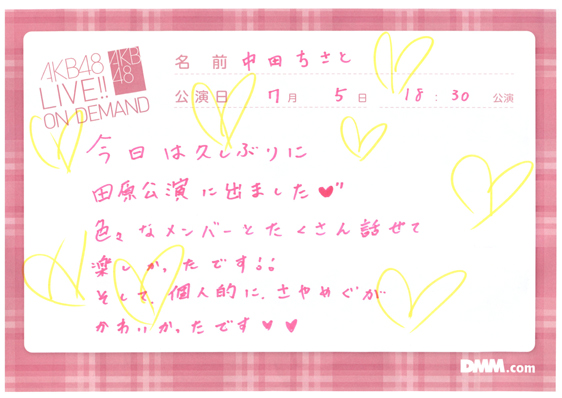 AKB48
LIVE!!
ON DEMAND
AKB
48
名 前 中田ちさと
公演日 7月 5日 18:30 公演
今日は久しぶりに
田原公演に出ました♥"
色々なメンバーとたくさん話せて
楽しかったです!!
そして、個人的に、さやめぐが
かわいかったです♥♥
DMM.com